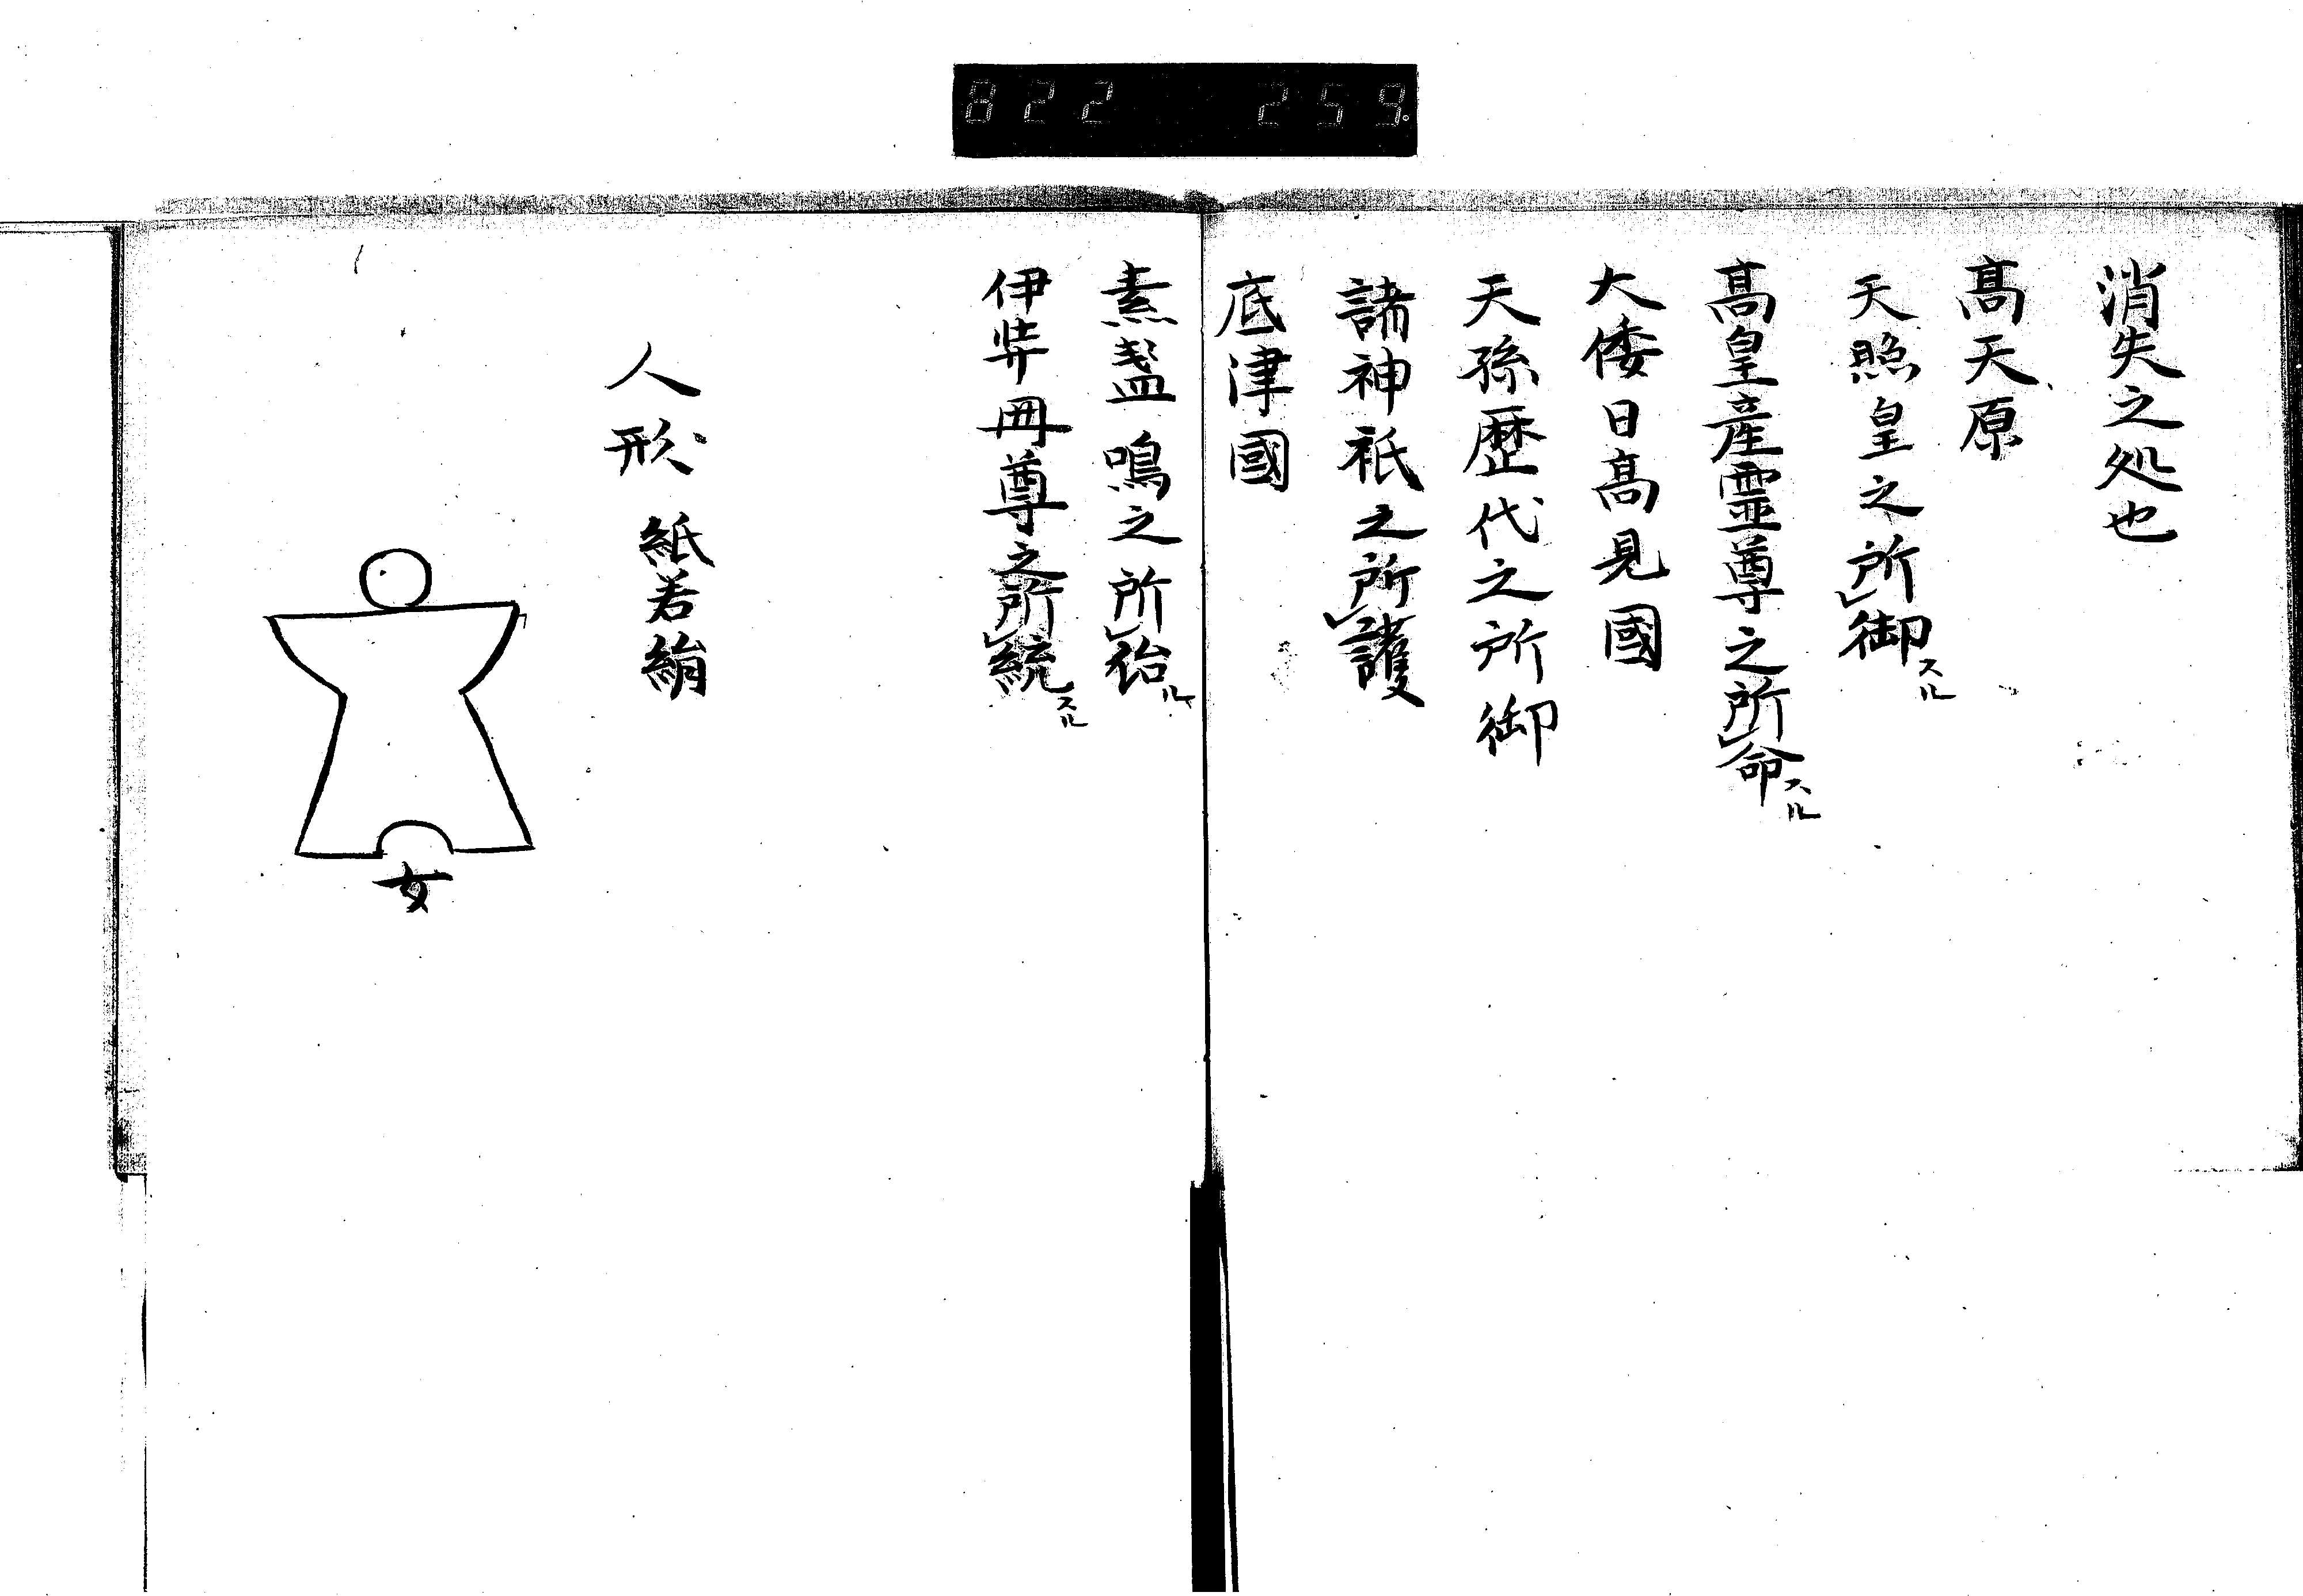 822 259
消失之処也
高天原
天照皇之所御スル
高皇産霊尊之所命スル
大倭日高見國
天孫歴代之所御
諸神祇之所護
底津國
素盞鳴之所治ル
伊弉冊尊之所統スル
人形 紙若絹
女